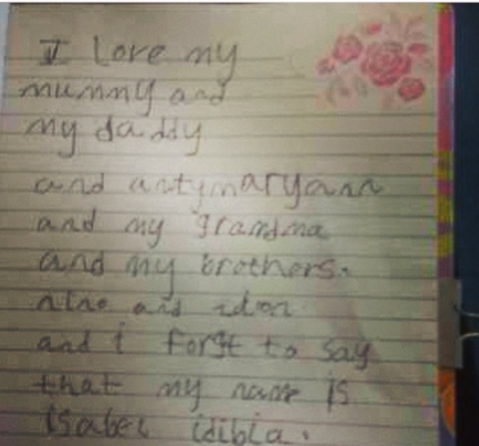 I Love my
mummy and
my daddy
and antymaryann
and my grandma
and my brothers.
and
and i forgt to say
that my name is
isabel idibia.